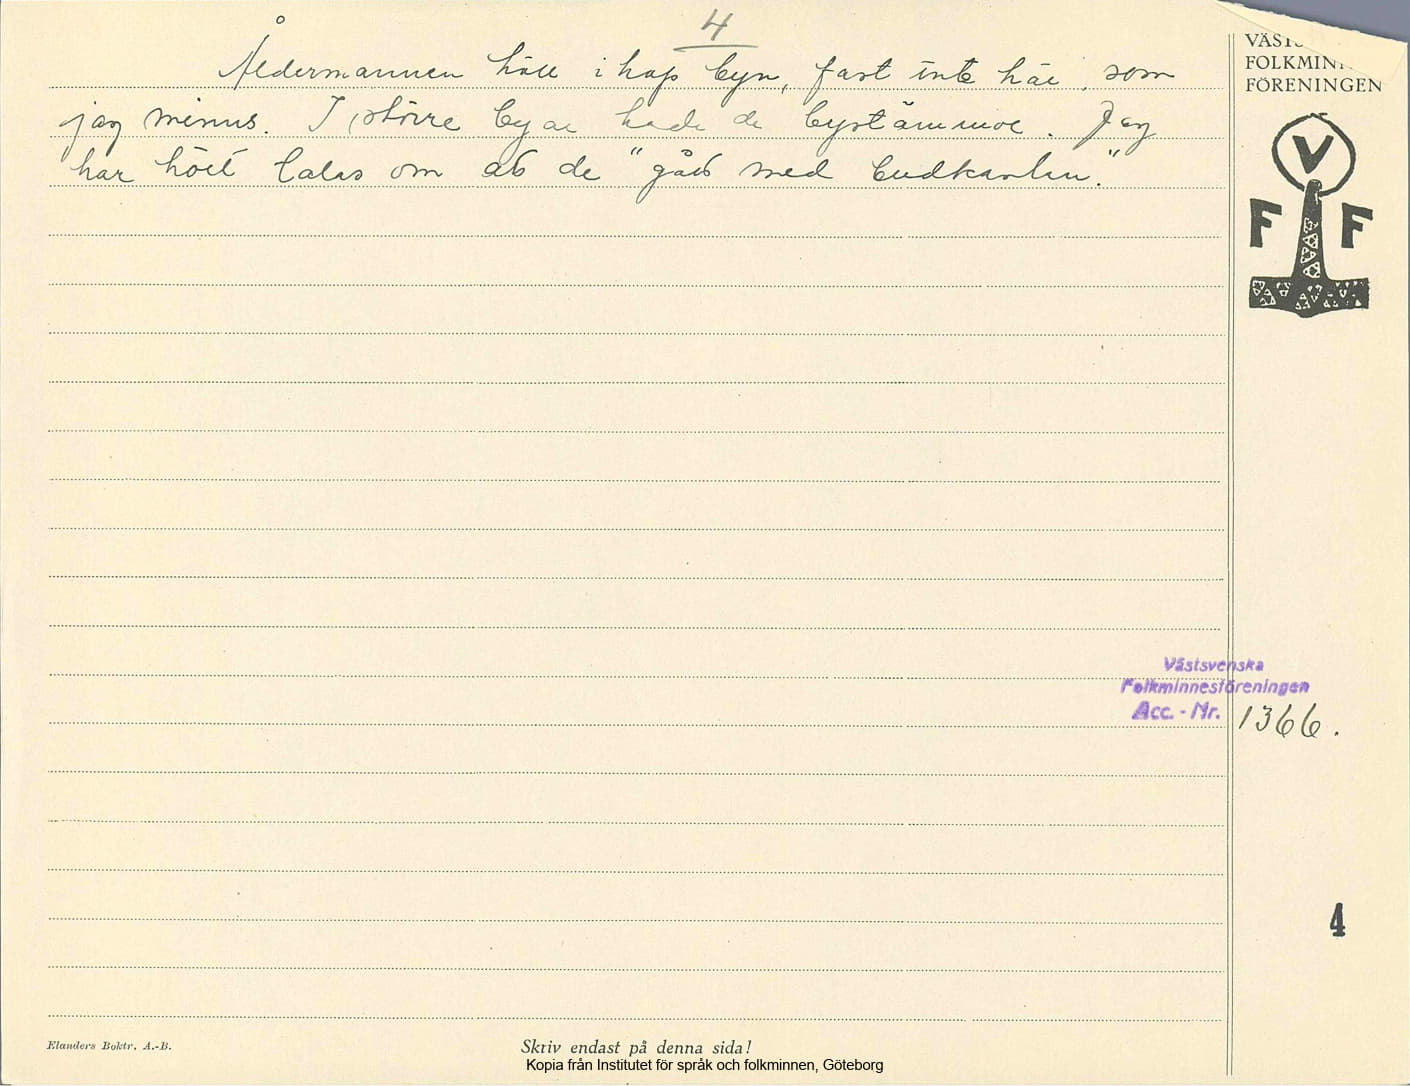 4
Åldermannen höll i hop byn, fast inte här, som
jag minns. I större byar hade de bystämmor. Jag
har hört talas om att de "gått med budkavlen."
FOLKMIN
FÖRENINGEN
V
F F
Västsvenska
Folkminnesföreningen
Acc. - Nr. 1366.
4
Elanders Boktr. A.-B.
Skriv endast på denna sida!
Kopia från Institutet för språk och folkminnen, Göteborg